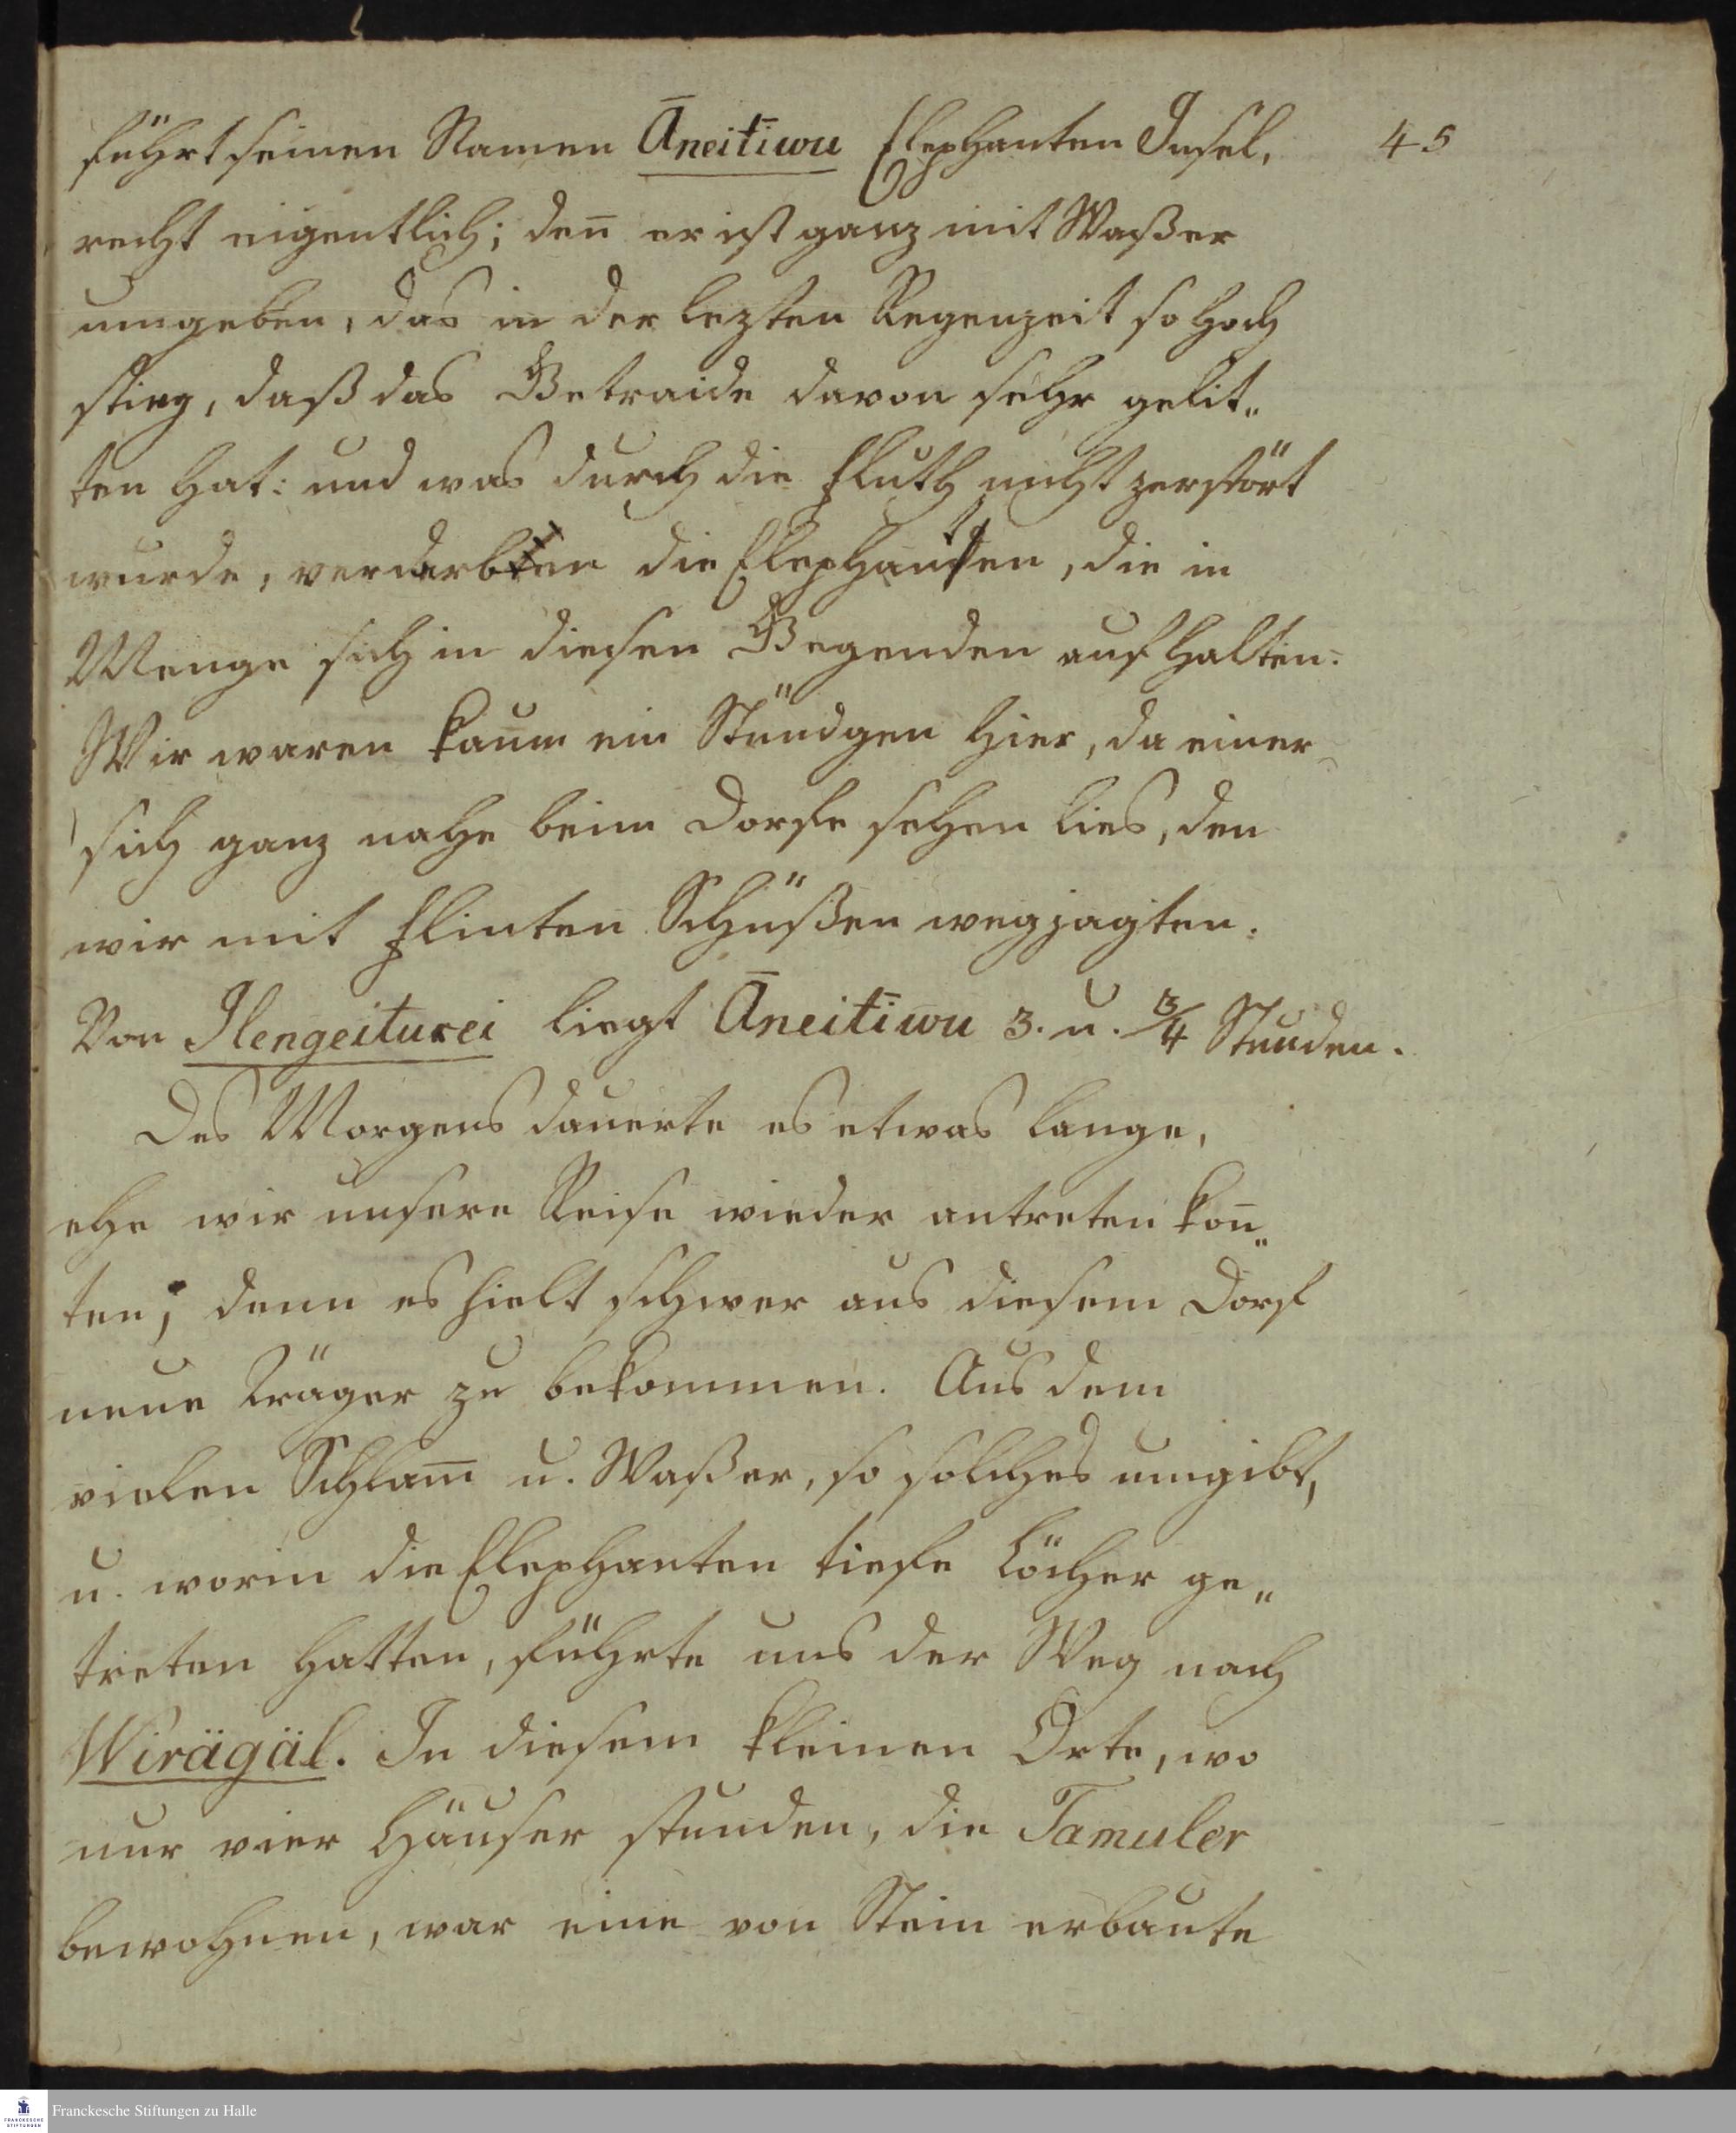 führt seinen Namen Āneitīwu Elephanten Insel, 45
recht eigentlich; den̄ er ist ganz mit Waßer
umgeben, das in der lezten Regenzeit so hoch
stieg, daß das Getraide davon sehr gelit„
ten hat: und was durch die Fluth nicht zerstört
wurde, verdarben die Elephanten, die in
Menge sich in diesen Gegenden aufhalten.
Wir waren kaum ein Stündgen hier, da einer
sich ganz nahe beim Dorfe sehen lies, den
wir mit Flinten Schüßen wegjagten.
Von Ilengeiturei liegt Āneitīwu 3. u. 3/4 Stunden.
Des Morgens dauerte es etwas lange,
ehe wir unsere Reise wieder antreten kon̄„
ten; denn es hielt schwer aus diesem Dorf
neue Träger zu bekommen. Aus dem
vielen Schlam̄ u. Waßer, so solches umgibt,
u. worin die Elephanten tiefe Löcher ge„
treten hatten, führte uns der Weg nach
Wirägäl. In diesem kleinen Orte, wo
nur vier Häuser stunden, die Tamuler
bewohnen, war eine von Stein erbaute
Franckesche Stiftungen zu Halle
FRANCKESCHE
STIFTUNGEN